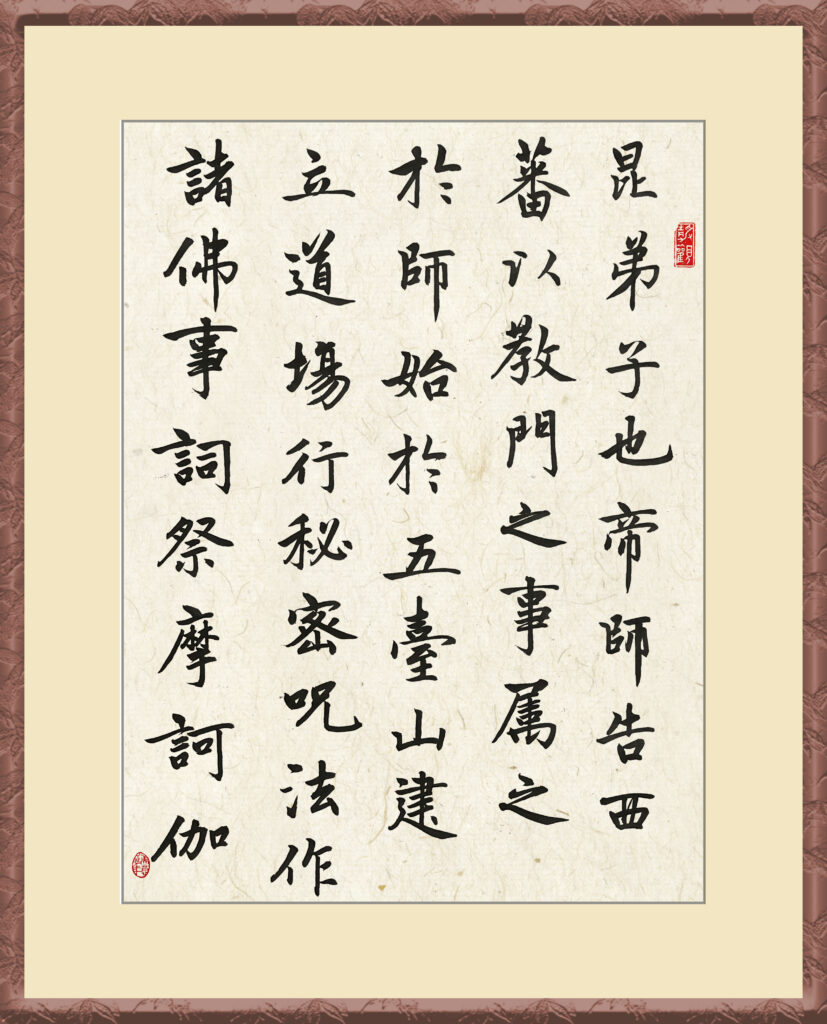 昆弟子也帝師告西
蕃以教門之事属之
於師始於五臺山建
立道場行秘密呪法作
諸佛事詞祭摩訶伽